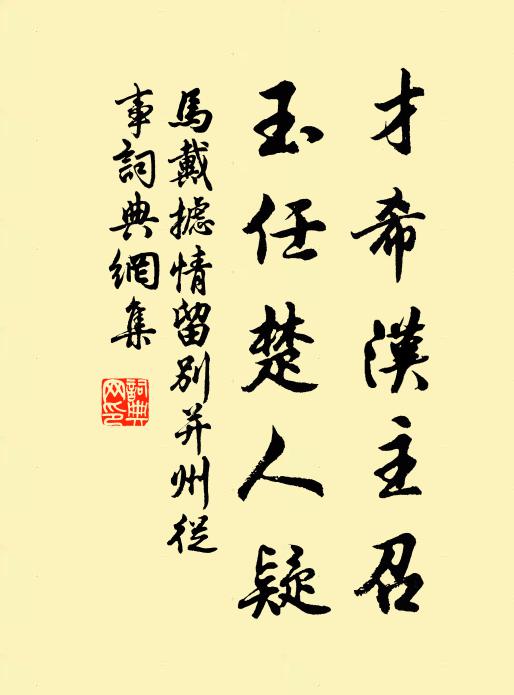 才希漢主召
玉任楚人疑
馬戴摅情留别并州從
事詞典網集
詞典
网印